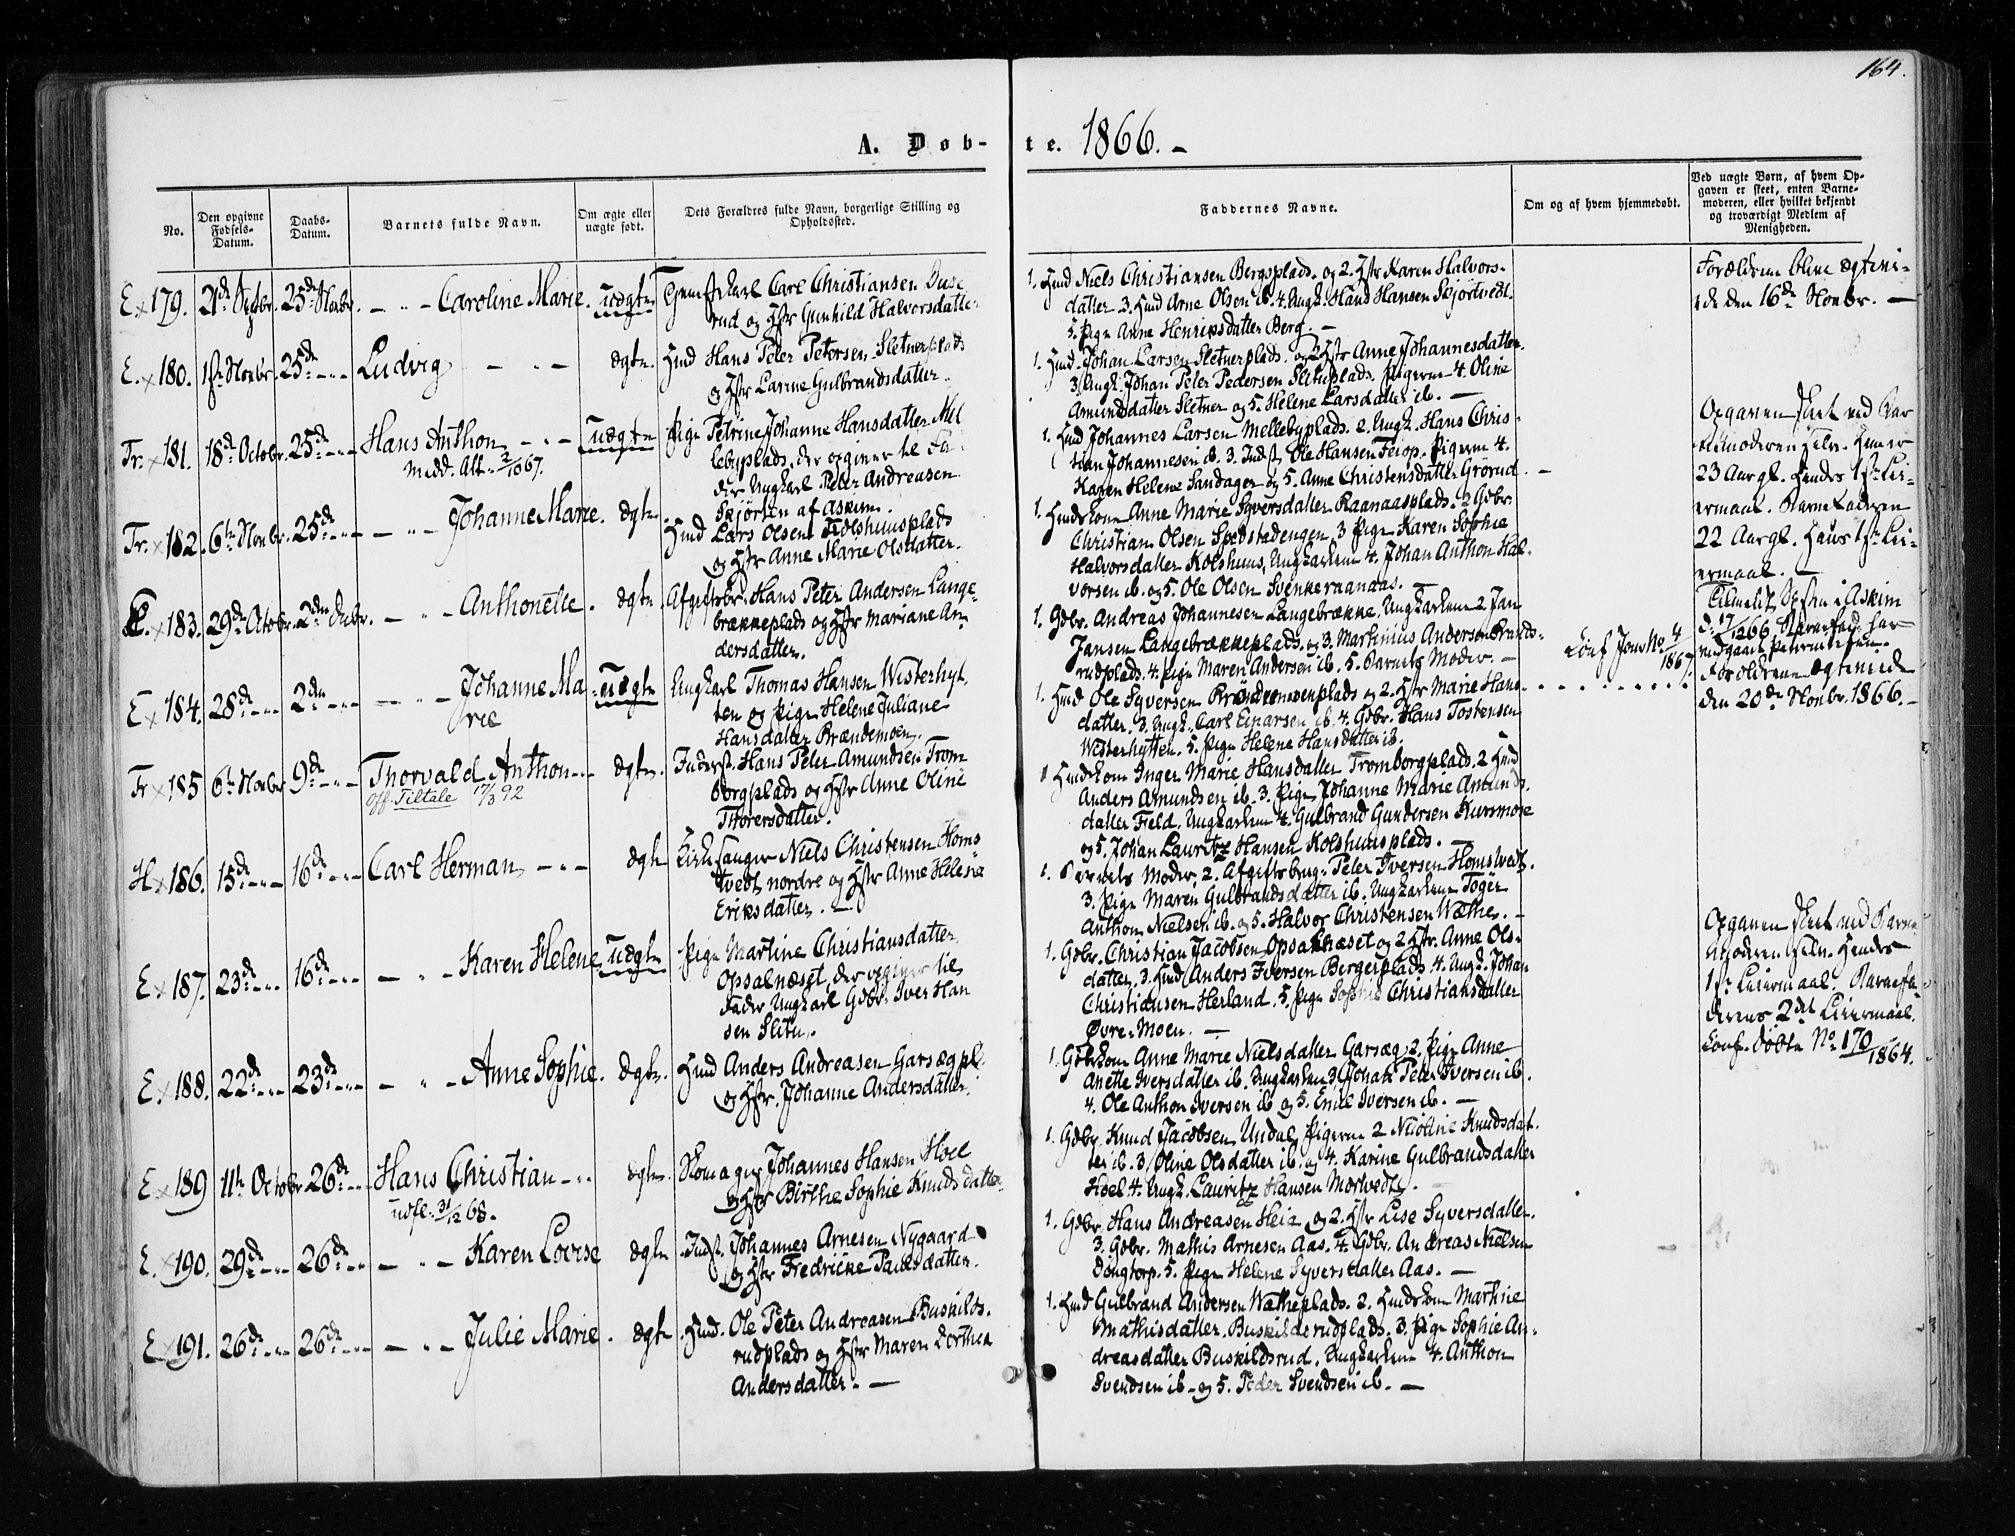 164.
A. Døb-
te. 1866. -
No.
Den opgivne Fødsels-Datum.
Daabs-Datum.
Barnets fulde Navn.
Om ægte eller uægte født.
Dets Forældres fulde Navn, borgerlige Stilling og Opholdssted.
Faddernes Navne.
Om og af hvem hjemmedøbt.
Ved uægte Børn, af hvem Op-
gaven er skeet, enten Barne-
moderen, eller hvilket bekjendt
og troværdigt Medlem af
Menigheden.
E. x 179. 21de 25de Novbr. - " - Caroline Marie. uægte
Carl Christiansen
rud og Hstr Gunhild Halvorsdatter.
1. Hmd Niels Christiansen Bergsplads. og 2. Hstr Karen Halvors-
datter. 3. Hmd Arne Olsen ib. 4. Ungk. Hans Hansen Skjørtvedt.
5. Pige Anne Henriksdatter Berg. -
Forældrene bleve ægtevi-
ede den 16de Novbr. -
E. x 180. 1ste Novbr. 25de - " - Ludvig - " - ægte.
Hmd Hans Peter Petersen Sletnerplads
og Hstr Larine Gulbrandsdatter.
1. Hmd. Johan Larsen Sletnerplads. og 2 Hstr Anne Johannesdatter.
3. Ungk. Johan Peter Pedersen Sletnerplads. Pigerne 4. Oline
Amundsdatter Sletner og 5. Helene Larsdatter ib. -
Fr. x 181. 18de Octobr. 25de - " - Hans Anthon - " - uægte
Medd. Att. 2/10 67.
Pige Petrine Johanne Hansdatter Mel
lebyplads, der opgiver til Fa-
der Ungkarl Peter Andreasen
Skjørten af Askim.
1. Hmd Johannes Larsen Mellebyplads. 2. Ungk. Hans Chris-
tian Johannesen ib. 3. Indst. Ole Hansen Feiop. Pigerne 4.
Karen Helene Sandager og 5. Anne Christensdatter Grørud. -
Opgaven skeet ved Bar
nemoderen selv. Hun er
23 Aar gl. Hendes 1ste Lei-
ermaal. Barnefaderen
22 Aar gl. Hans 1ste Lei-
ermaal. -
Tilmeldt Spr. i Askim
d. 17/12 66
Fr. x 182. 6te Novbr. 25de - " - - " - Johanne Marie. ægte.
Hmd Lars Olsen Kolshuusplads
og Hstr Anne Marie Olsdatter.
1. Hmdskone Anne Marie Syversdatter Raanaasplads. 2 Gdbr.
Christian Olsen Spydstadengen. 3 Pige Karen Sophie
Halvorsdatter Kolshuus, Ungkarlene 4. Johan Anthon Hal-
vorsen ib. og 5. Ole Olsen Svenkeraanaas.
E. x 183. 29de Octobr. 2den Decbr. - " - Anthonette. ægte.
Afgiftsbr. Hans Peter Andersen Lange-
brækkeplads og Hstr Mariane An-
dersdatter.
1. Gdbr. Andreas Johannesen Langebrække. Ungkarlene 2 Jan
Jansen Langebrækkeplads. og 3. Marthinius Andersen
rudplads. 4. Pige Maren Andersen ib. 5. Barnets Moder. -
Conf. Jour No. 4/1867.
E x 184. 28de - " - 2den - " - - " - Johanne Ma-
rie uægte
Ungkarl Thomas Hansen Westerhyt
ten og Pige Helene Juliane
Hansdatter Brændemoen.
1. Hmd Ole Syversen Brændemoenplads og 2. Hstr Marie Hans-
datter. 3. Ungk. Carl Einarsen ib. 4. Gdbr. Hans Tostensen
Westerhytten. 5. Pige Helene Hansdatter ib.
Forældrene ægteviede
den 20de Novbr. 1866. -
Fr x 185 6te Novbr 9de - " - Thorvald Anthon - " - ægte.
Off. Tiltale 17/3 92
Inderst. Hans Peter Amundsen Trom
borgplads og Hstr Anne Oline
Thorersdatter.
1 Hmdskone Inger Marie Hansdatter Tromborgplads. 2 Hmd
Anders Amundsen ib. 3. Pige Johanne Marie Amunds-
datter Feld. Ungkarlene 4. Gulbrand Gundersen Kursmose
og 5. Johan Lauritz Hansen Kolshuusplads. -
H x 186. 15de - " - 16de - " - Carl Herman - " - ægte
Kirkesanger Niels Christensen Homs
tvedt nordre og Hstr Anne Helene
Eriksdatter. -
1. Barnets Moder, 2. Afgiftsbrug. Peter Iversen Homstvedt.
3. Pige Maren Gulbrandsdatter ib. Ungkarlene Toger
Anthon Nielsen ib. og 5. Halvor Christensen Wæthe. -
E x 187. 23de - " - 16de - " - - " - Karen Helene uægte
Pige Martine Christiansdatter
Opsalnæset, der opgiver til
Fader Ungkarl Gdbr. Iver Han
sen Slitu.
1. Gdbr. Christian Jacobsen Opsalnæset og 2 Hstr. Anne Ols-
datter. 3. Hmd Anders Iversen Bergerplads. 4. Ungk. Johan
Christiansen Herland. 5. Pige Sophie Christiansdatter
Øvre-Moen. -
Opgaven skeet ved Barne-
moderen selv. Hendes
1ste Leiermaal. Barnefa-
derens 2det Leiermaal.
Conf. døbte No 170/1864.
E. x 188. 22de - " - 23de - " - - " - Anne Sophie. ægte.
Hmd Anders Andreasen Garsægpl.
og Hstr. Johanne Andersdatter.
1. Gdbrkone Anne Marie Nielsdatter Garsæg. 2. Pige Anne
Anette Iversdatter ib. Ungkarlene 3. Johan Peter Iversen ib.
4. Ole Anthon Iversen ib og 5. Emil Iversen ib. -
E. x 189 11te Octobr 26de - " - Hans Christian - " - ægte.
udfl. 31/12 68.
Skomager Johannes Hansen Hoel
og Hstr Birthe Sophie Knudsdatter.
1. Gdbr. Knud Jacobsen Undal. Pigerne 2 Nicoline Knudsdat-
ter ib. 3. Oline Olsdatter ib. og 4. Karine Gulbrandsdatter
Hoel 4. Ungk. Lauritz Hansen Morvedt. -
E. x 190. 29de - " - 26de - " - - " - Karen Lovise ægte.
Indst. Johannes Arnesen Nygaard
og Hstr Fredricke Paulsdatter.
1. Gdbr. Hans Andreasen Heia og 2. Hstr Lise Syversdatter.
3. Gdbr. Mathis Arnesen Aas. 4. Gdbr. Andreas Nielsen
Dengtorp. 5. Pige Helene Syversdatter Aas. -
E x 191. 26de - " - 26de - " - - " - Julie Marie. ægte
Hmd. Ole Peter Andreasen Buskilds-
rudplads og Hstr Maren Dorthea
Andersdatter. -
1. Hmd Gulbrand Andersen Wætheplads. 2. Hmdskone Marthe
Mathisdatter. Buskildsrudplads. 3. Pige Sophie An-
dreasdatter Buskildsrud. Ungkarlene 4. Anthon
Svendsen ib. og 5. Peder Svendsen ib. -